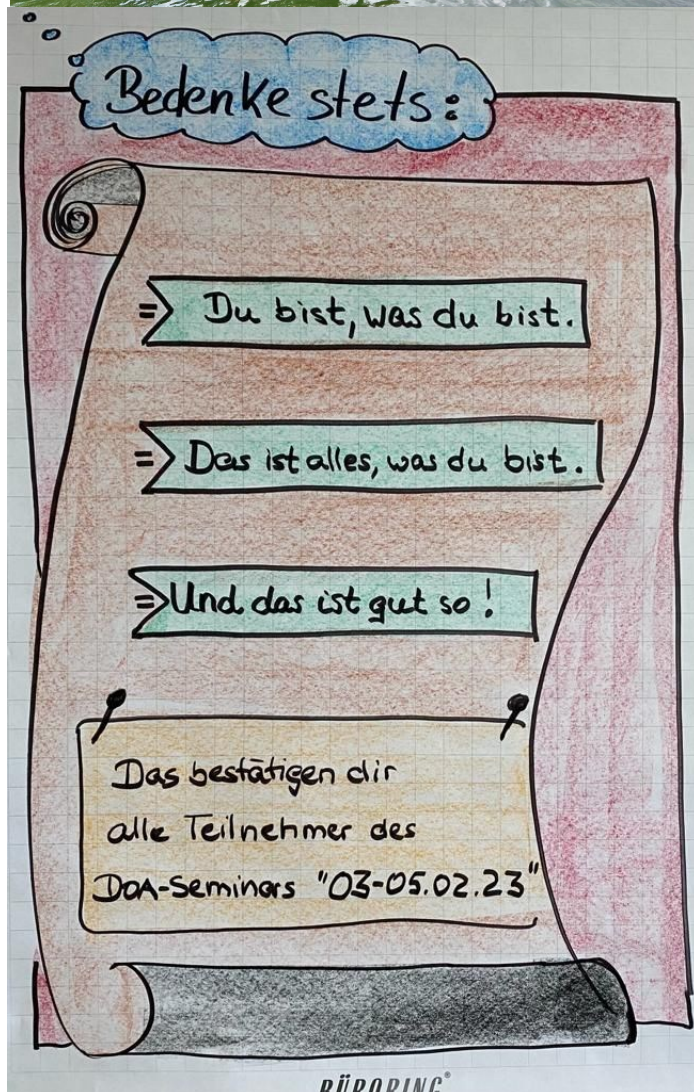 Bedenke stets:
=> Du bist, was du bist.
=> Das ist alles, was du bist.
=> Und das ist gut so!
Das bestätigen dir
alle Teilnehmer des
DOA-Seminars "03-05.02.23"
BÜRORING®